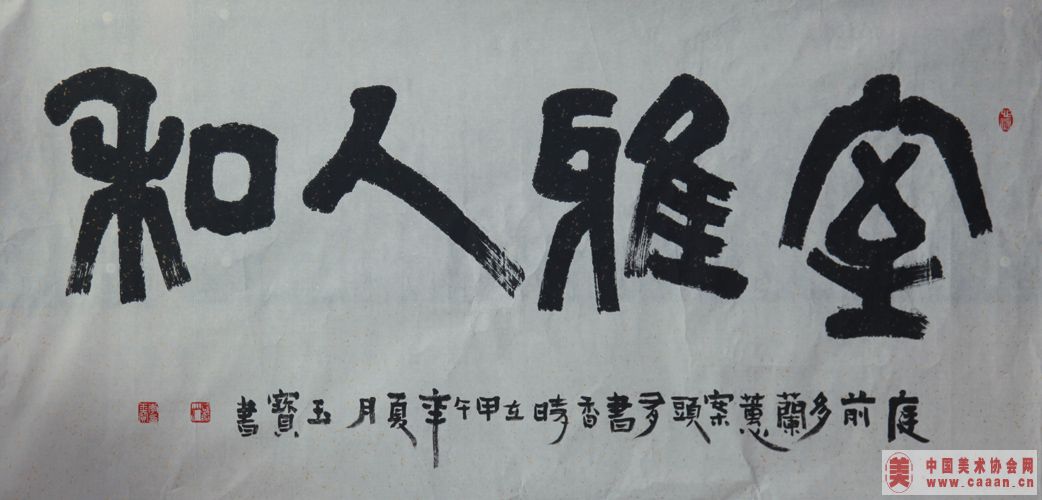 室雅人和
庭前多蘭蕙案頭多書香時在甲午年夏月玉寶書
中国美术协会网
www.caaan.cn
美